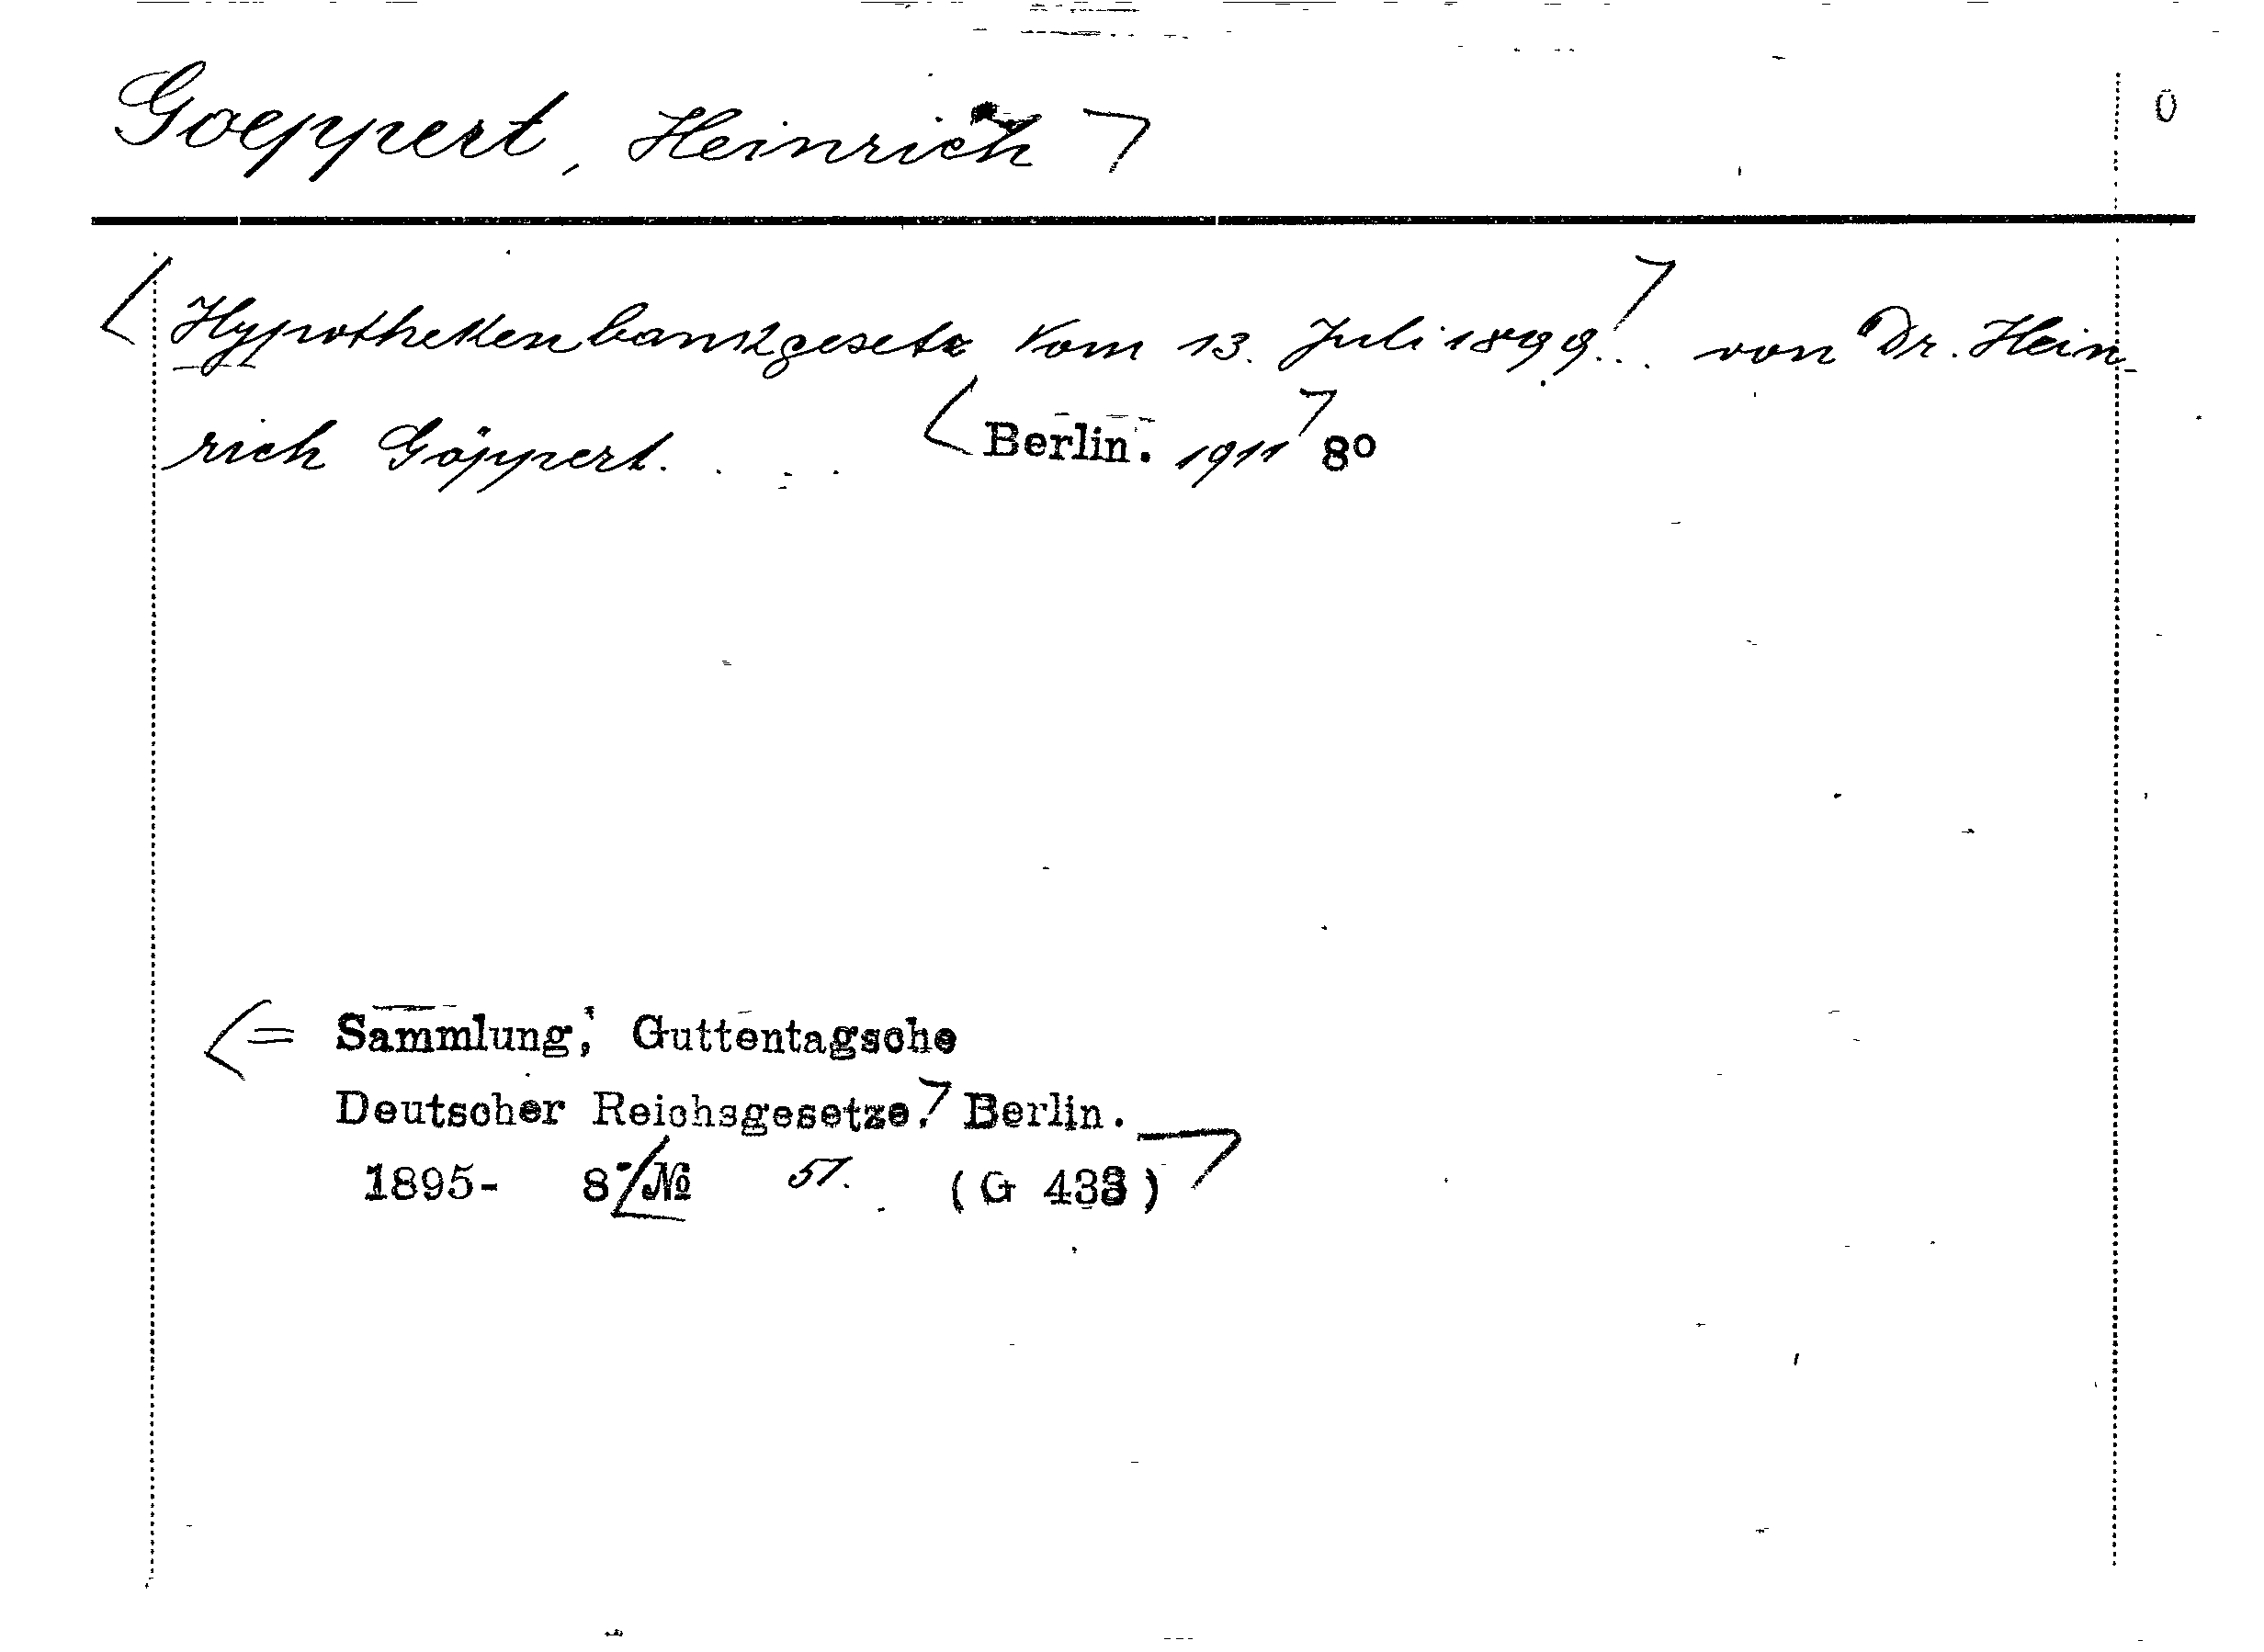 Goeppert, Heinrich
0
Hypothekenbankgesetz vom 13. Juli 1899... von Dr. Hein-
rich Göppert. . . . Berlin. 1911 8°
= Sammlung, Guttentagsche
Deutscher Reichsgesetze. Berlin.
1895- 8° № 51. (G 433)